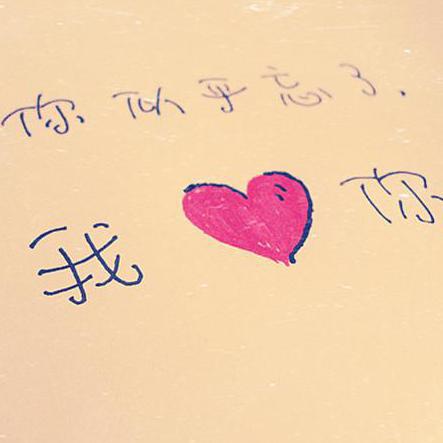 你似乎忘了.
我 你